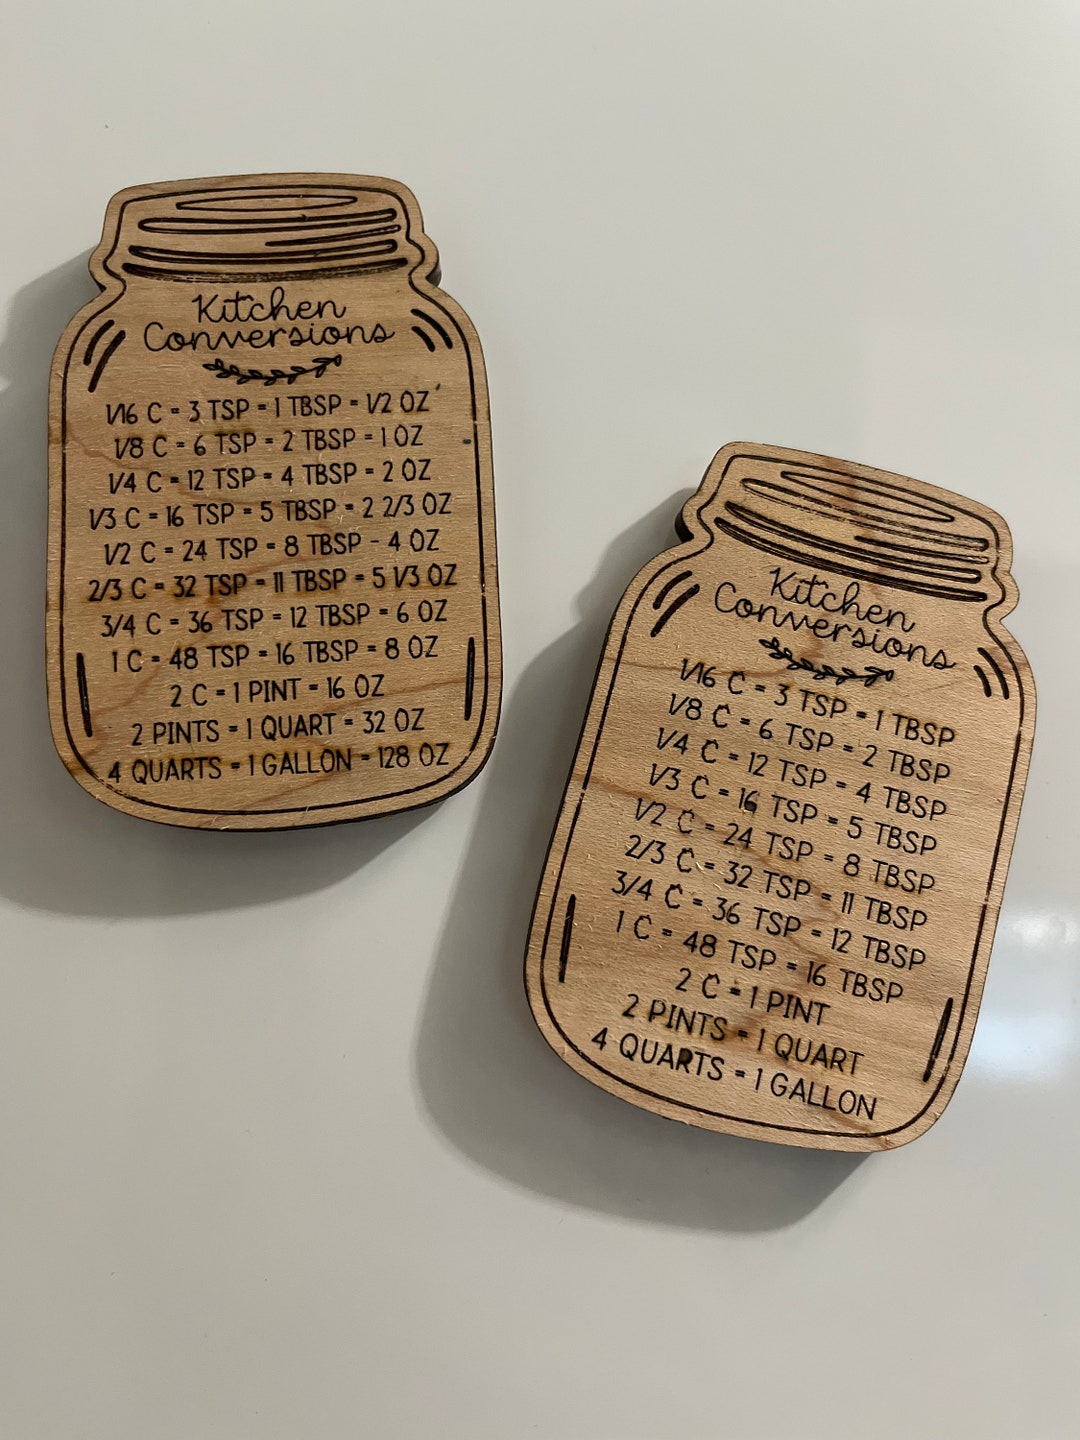 Kitchen
Conversions
1/16 C = 3 TSP = 1 TBSP = 1/2 OZ
1/8 C = 6 TSP = 2 TBSP = 1 OZ
1/4 C = 12 TSP = 4 TBSP = 2 OZ
1/3 C = 16 TSP = 5 TBSP = 2 2/3 OZ
1/2 C = 24 TSP = 8 TBSP - 4 OZ
2/3 C = 32 TSP = 11 TBSP = 5 1/3 OZ
3/4 C = 36 TSP = 12 TBSP = 6 OZ
1 C = 48 TSP = 16 TBSP = 8 OZ
2 C = 1 PINT = 16 OZ
2 PINTS = 1 QUART = 32 OZ
4 QUARTS = 1 GALLON = 128 OZ
Kitchen
Conversions
1/16 C = 3 TSP = 1 TBSP
1/8 C = 6 TSP = 2 TBSP
1/4 C = 12 TSP = 4 TBSP
1/3 C = 16 TSP = 5 TBSP
1/2 C = 24 TSP = 8 TBSP
2/3 C = 32 TSP = 11 TBSP
3/4 C = 36 TSP = 12 TBSP
1 C = 48 TSP = 16 TBSP
2 C = 1 PINT
2 PINTS = 1 QUART
4 QUARTS = 1 GALLON